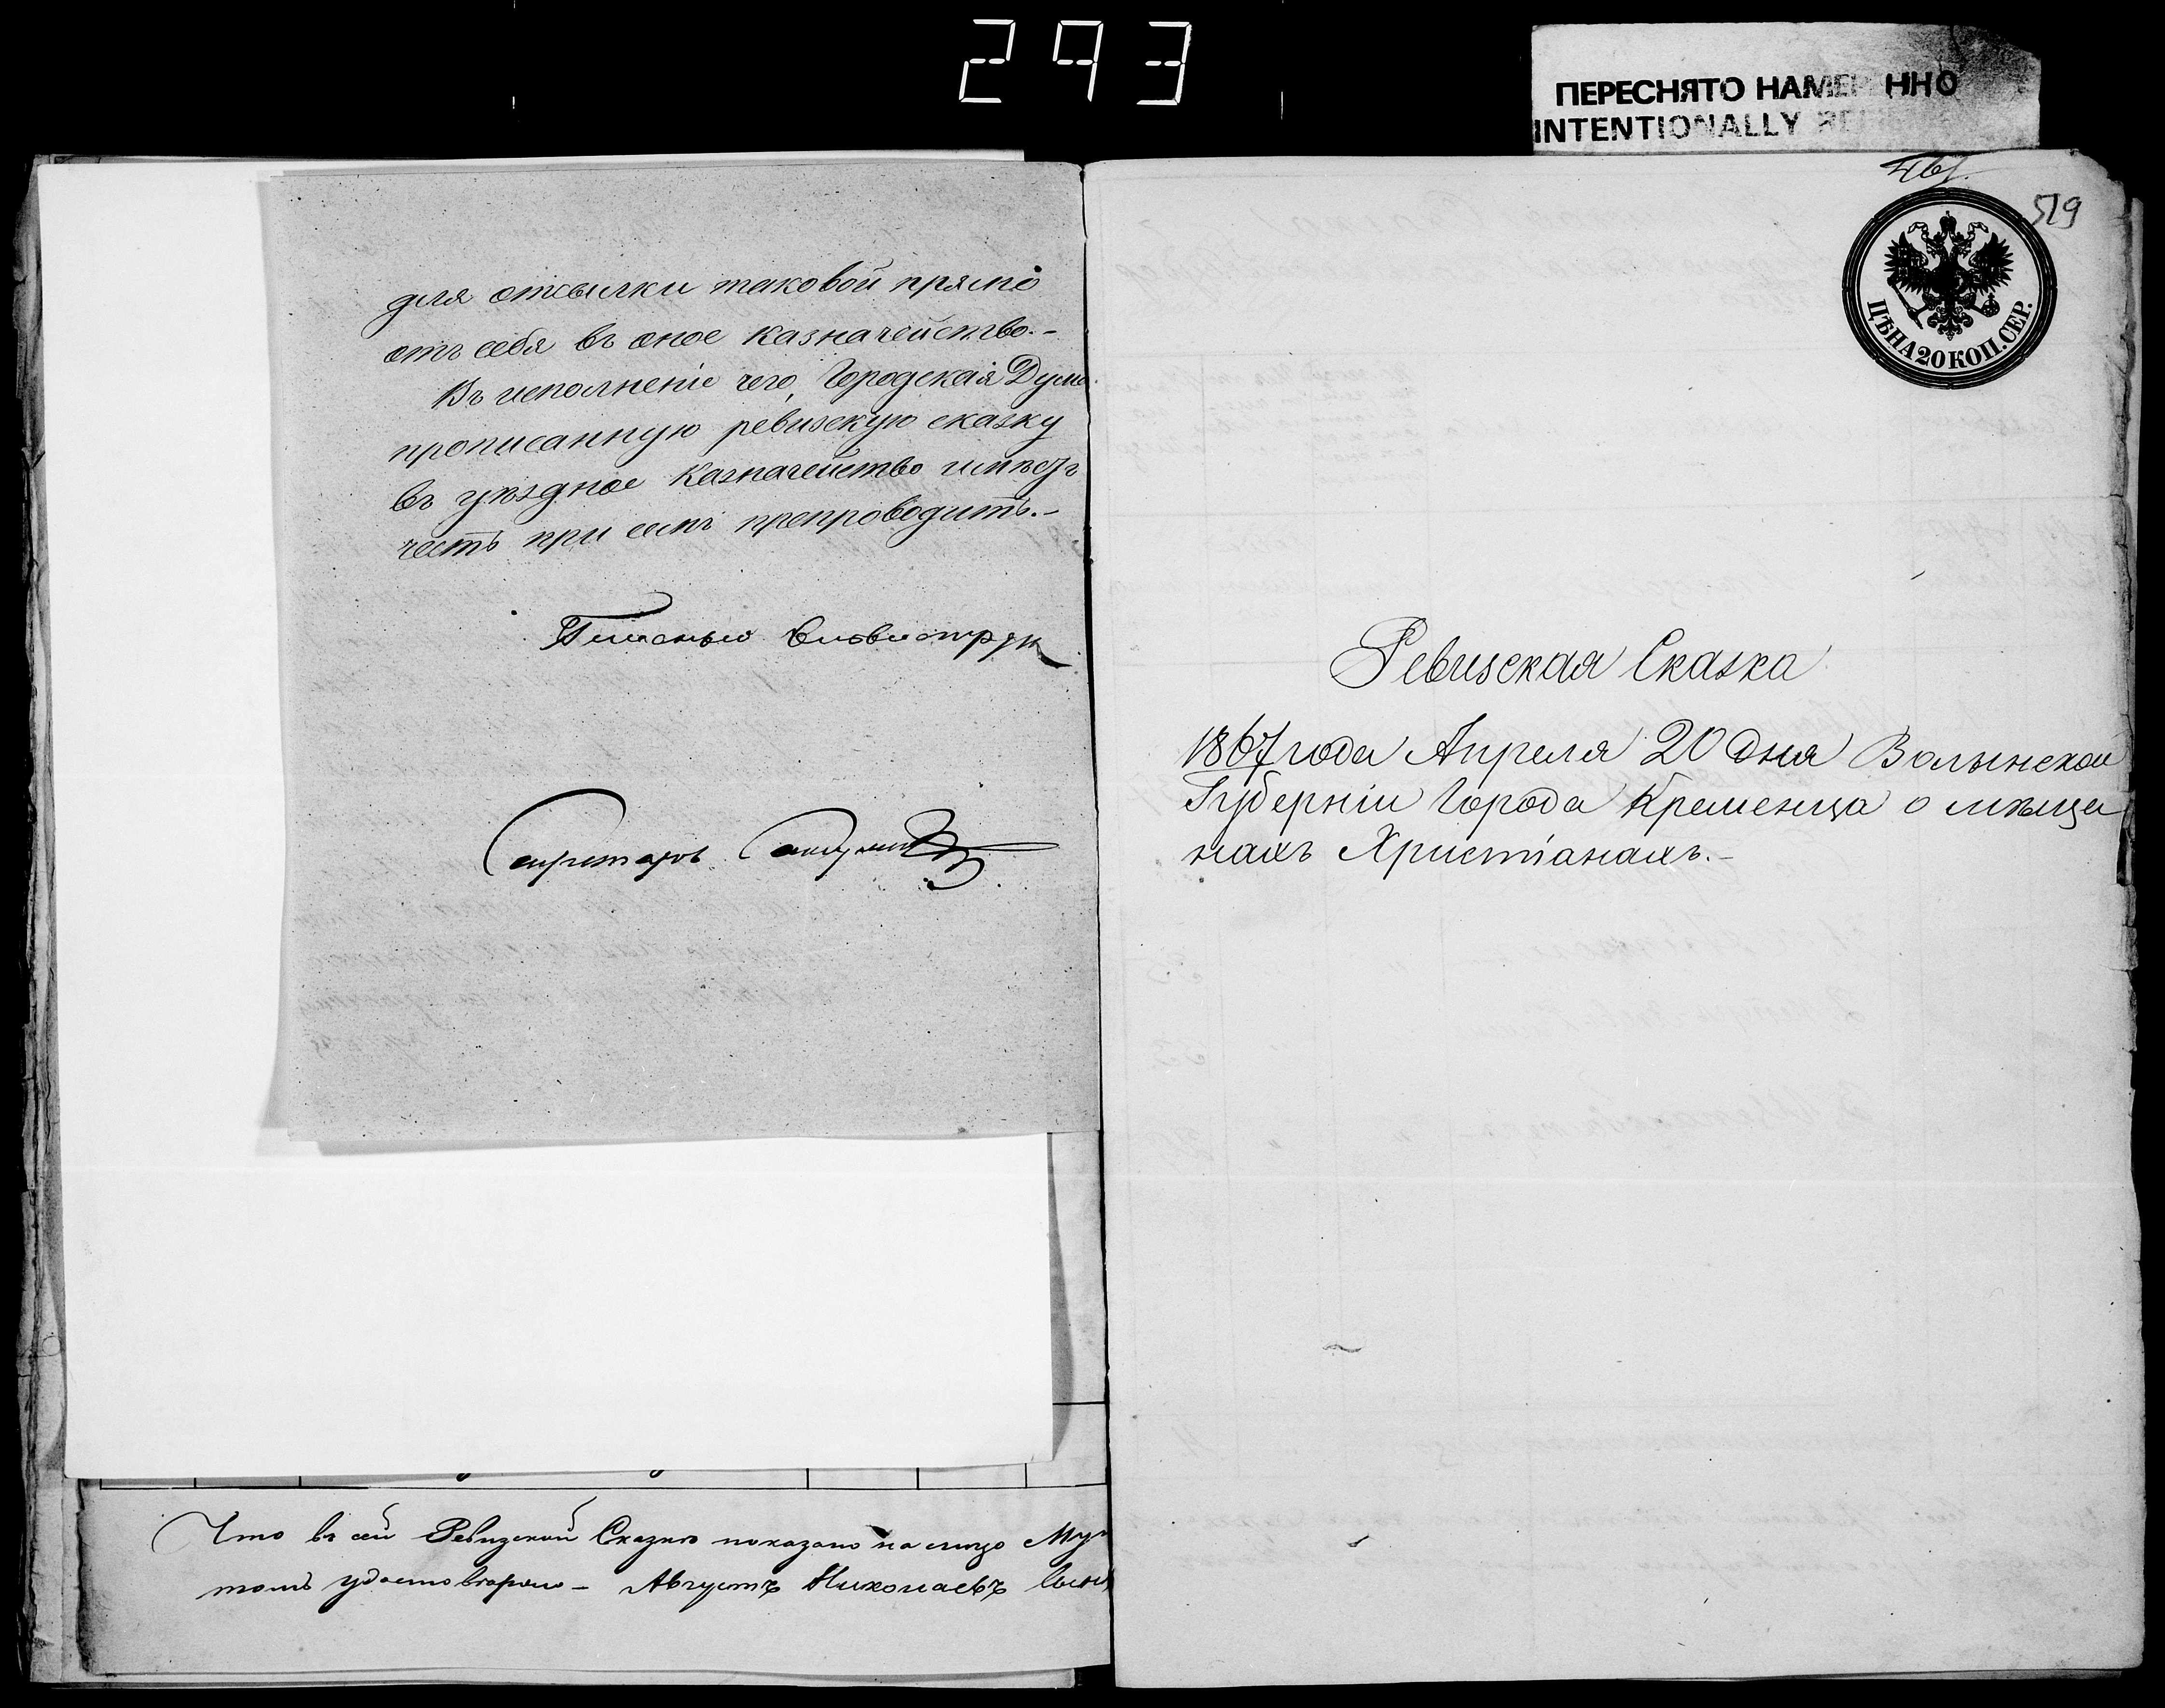 293
ПЕРЕСНЯТО НАМЕР ННО
INTENTIONALLY RE
519
ЦѢНА 20 КОП. СЕР.
для отсылки таковой прямо
отъ себя въ оное казначейство.-
Въ исполненіе чего, Городская Дума
прописанную ревизскую сказку
въ уѣздное казначейство имѣетъ
честь при семъ препроводить.-
Секретарь
Что въ сей Ревизской Сказкѣ показано на лицо Му
томъ удостовѣряю - Августъ Николаевъ сынъ
Ревизская Сказка
1867 года Апреля 20 дня Волынской
Губерніи Города Кременца о мѣща
нахъ Христіанахъ.-